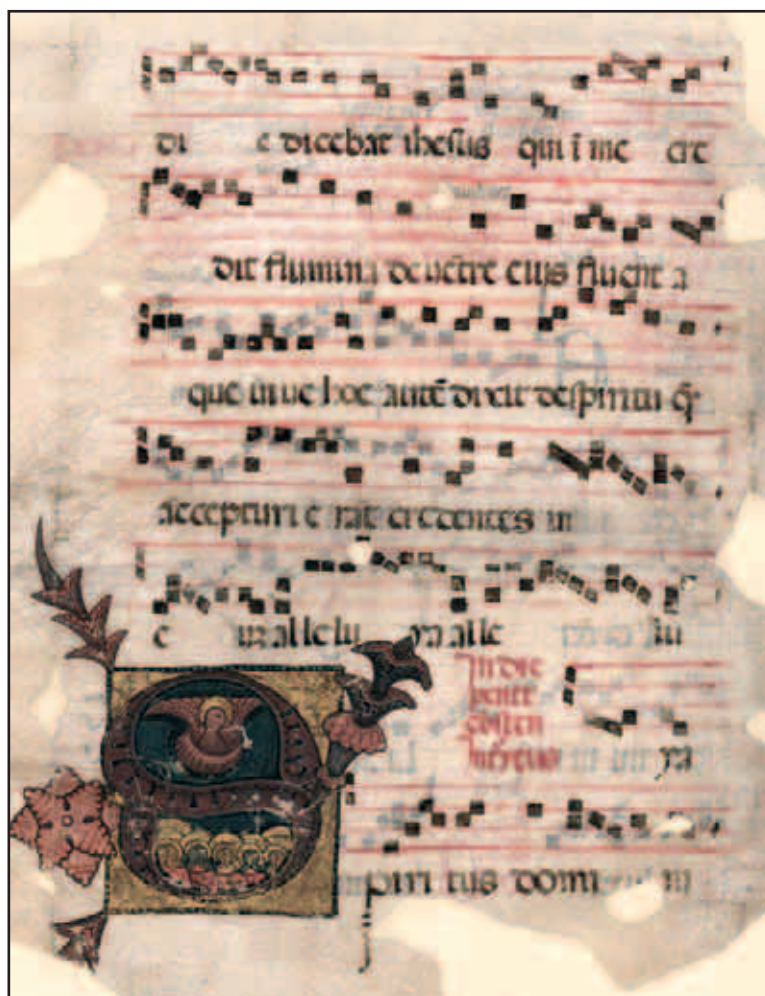 di e dicebat ihesus qui ī me cre
dit flumina de uētre eius fluent a
que uiue hoc autē dixit de spiritu q̄
accepturi e rāt credentes in
e um allelu ya alle lu
In die
pente
costen
ya
piri tus domi ni